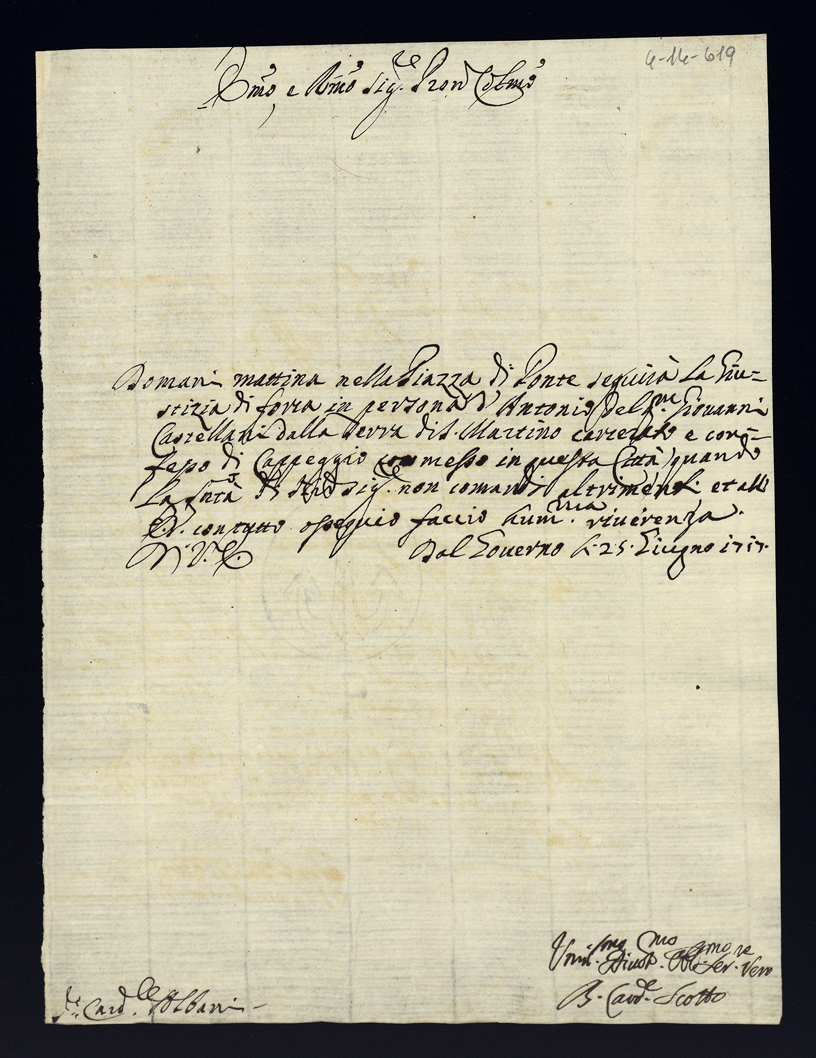 4-14-619
Emo, e Rmo Sig.re Pron Colmo
Domani mattina nella Piazza di Ponte seguirà la Giu=
stizia di forza in persona d'Antonio del q.m Giovanni
Castellani dalla Terra di S. Martino carcerato e con=
fesso di Cappeggio commesso in questa Città, quando
la Sntà di Nro Sig.re non comandi altrimenti. et all
E.V. con tutto ossequio faccio hum.ma riverenza.
Di V.E. Dal Governo li 25. Giugno 1717.
Um.mo Divot.mo Obl.mo Ser.re Vero
B. Card. Scotto
S.r Card.le Albani